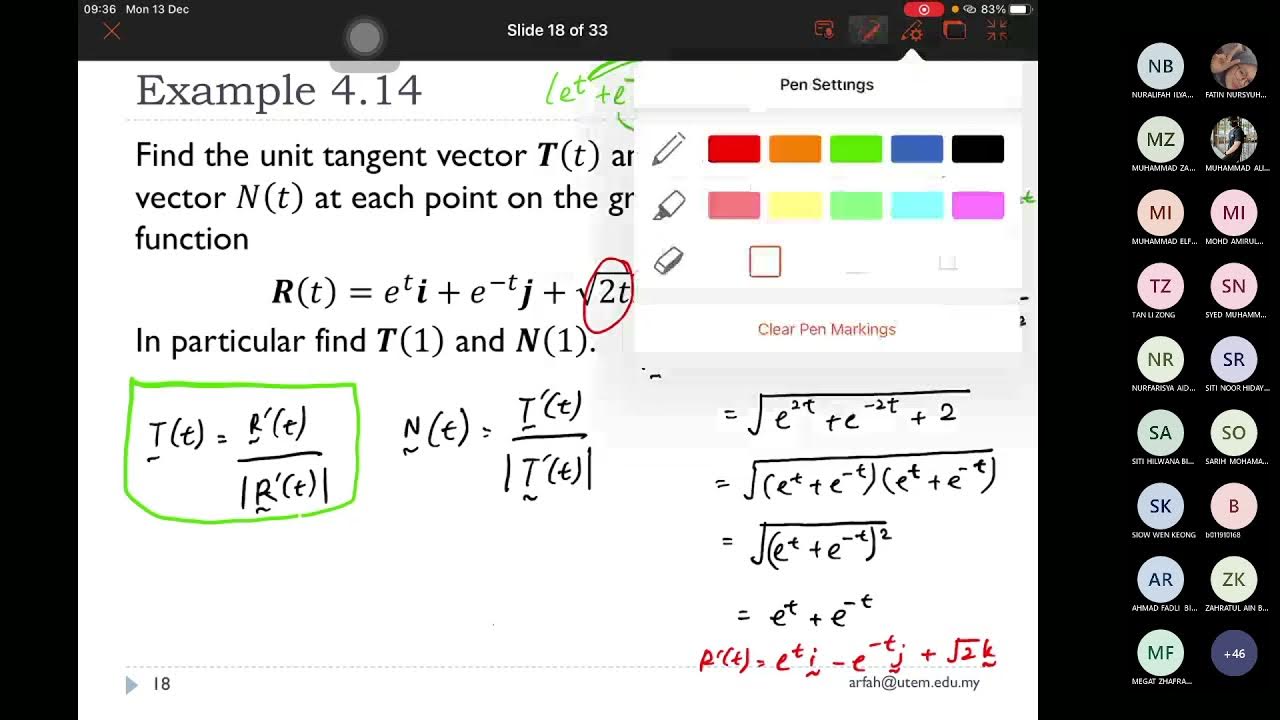 09:36 Mon 13 Dec
83%
Slide 18 of 33
Example 4.14
(eᵗ + e⁻
Pen Settings
Find the unit tangent vector T(t) an
vector N(t) at each point on the gr
function
R(t) = eᵗi + e⁻ᵗj + √2t
In particular find T(1) and N(1).
Clear Pen Markings
T(t) = R′(t) / |R′(t)|
N(t) = T′(t) / |T′(t)|
= √(e²ᵗ + e⁻²ᵗ + 2)
= √((eᵗ + e⁻ᵗ)(eᵗ + e⁻ᵗ))
= √((eᵗ + e⁻ᵗ)²)
= eᵗ + e⁻ᵗ
R′(t) = eᵗ i − e⁻ᵗ j + √2 k
18
arfah@utem.edu.my
NB
NURALIFAH ILYA...
FATIN NURSYUH...
MZ
MUHAMMAD ZA...
MUHAMMAD ALI...
MI
MUHAMMAD ELF...
MI
MOHD AMIRUL...
TZ
TAN LI ZONG
SN
SYED MUHAMM...
NR
NURFARISYA AID...
SR
SITI NOOR HIDAY...
SA
SITI HILWANA BI...
SO
SARIH MOHAMA...
SK
SIOW WEN KEONG
B
b011910168
AR
AHMAD FADLI BI...
ZK
ZAHRATUL AIN B...
MF
MEGAT ZHAFRA...
+46